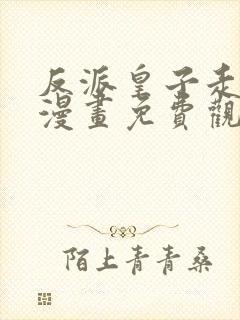 反派皇子走
漫畫免費觀
陌上青青桑